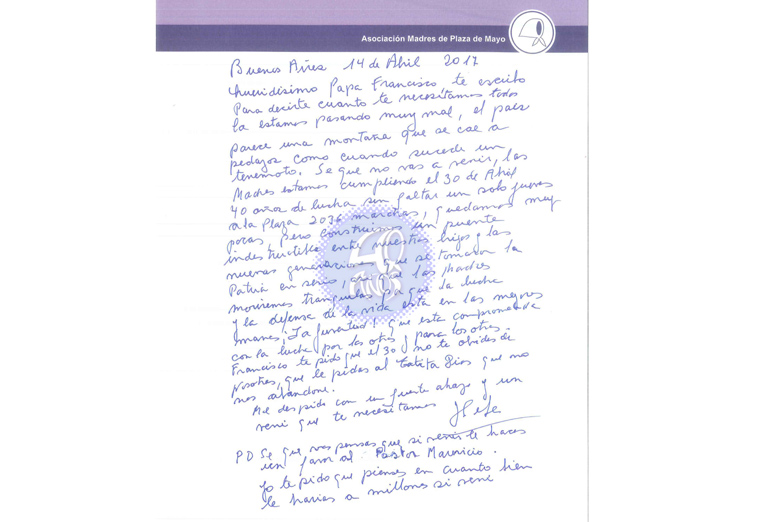 Asociación Madres de Plaza de Mayo
Buenos Aires 14 de Abril 2017
Queridísimo Papa Francisco te escribo
Para decirte cuanto te necesitamos todos
la estamos pasando muy mal, el país
parece una montaña que se cae a
pedazos como cuando sucede un
terremoto. Se que no vas a venir, las
Madres estamos cumpliendo el 30 de Abril
40 años de lucha sin faltar un solo jueves
a la Plaza 2036 marchas, quedamos muy
pocas, pero construimos un puente
indestructible entre nuestros hijos y las
nuevas generaciones que se tomaron la
Patria en serio, así que las Madres
moriremos tranquilas ya que la lucha
y la defensa de la vida está en las mejores
manos, ¡La juventud! que esta comprometida
con la lucha por los otros y para los otros.
Francisco te pido que el 30 no te olvides de
nosotras, que le pidas al Tatita Dios que no
nos abandone.
Me despido con un fuerte abrazo y un
vení que te necesitamos Hebe
PD Se que vas pensas que si venís le haces
un favor al Pastor Mauricio.
Yo te pido que pienses en cuanto bien
le harías a millones si vení
40
AÑOS